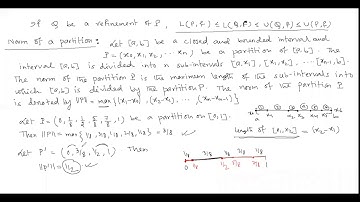 If Q be a refinement of P, L(P,f) ≤ L(Q,f) ≤ U(Q,f) ≤ U(P,f)
Norm of a partition: Let [a,b] be a closed and bounded interval and
P = (x₀, x₁, x₂, ... xₙ) be a partition of [a,b]. The
interval [a,b] is divided into n sub-intervals [a,x₁], [x₁,x₂], ... [xₙ₋₁,b].
The norm of the partition P is the maximum length of the sub-intervals into
which [a,b] is divided by the partition P. The norm of the partition P
is denoted by ||P|| = max {x₁-x₀, (x₂-x₁), ... (xₙ-xₙ₋₁)}
Let P = (0, 1/8, 1/2, 5/8, 7/8, 1) be a partition on [0,1].
Then ||P|| = max {1/8, 3/8, 1/8, 2/8, 1/8} = 3/8
length of [x₁,x₂] = (x₂-x₁)
Let P' = (0, 3/8, 1/2, 1) Then
||P'|| = 1/2
1/8 3/8 1/8 2/8 1/8
0 1/8 1/2 5/8 7/8 1